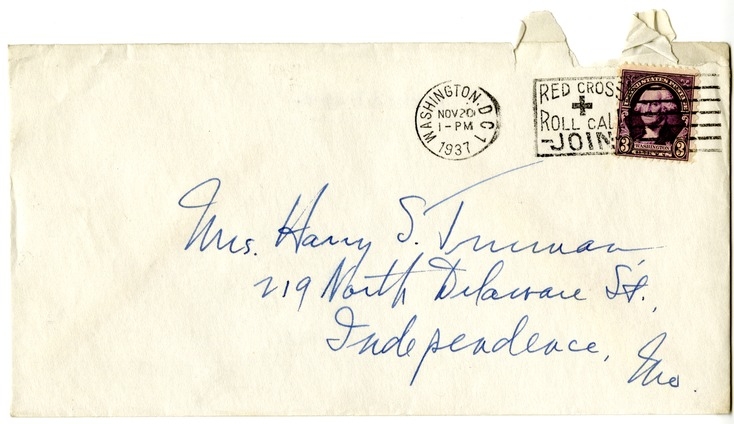 WASHINGTON, D C 1
NOV 20
1-PM
1937
RED CROSS
ROLL CALL
JOIN
UNITED STATES POSTAGE
3 WASHINGTON 3
Mrs. Harry S. Truman
219 North Delaware St.,
Independence,
Mo.